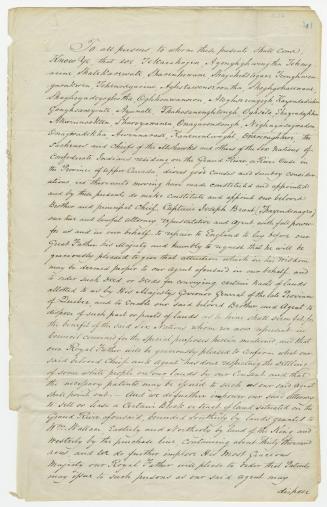 To all persons to whom these presents shall come
Know Ye that we Tekarihogea
Sachems and Chiefs of the Mohawks and others of the Six Nations of
Confederate Indians residing on the Grand River or River Ouse in
the Province of Upper Canada, divers good causes and sundry consider
ations us thereunto moving have made constituted and appointed
and by these presents do make constitute and appoint our beloved
Brother and principal Chief Captain Joseph Brant (Thayendanegea)
our true and lawful attorney representative and Agent with full power
for us and in our behalf to repair to England to lay before our
Great Father his Majesty and humbly to request that he will be
graciously pleased to give that attention which in his Wisdom
may be deemed proper to our Agent aforesaid in our behalf, and
to order such Deed or Deeds for conveying certain tracts of lands
allotted to us by His Majesty's Governor General of the late Province
of Quebec, and to enable our said beloved Brother and Agent to
dispose of such part or parts of lands as to him shall seem fit, for
the benefit of the said Six Nations whom we now represent in
Council convened for the special purposes herein mentioned and that
our Royal Father will be graciously pleased to confirm what our
said beloved Chief and Agent has done respecting the settling
of some white people on our lands by our Consent and that
the necessary patents may be issued to such as our said Agent
shall point out. And we do further empower our said Attorney
to sell or lease a Certain Block or tract of land situated on the
Grand River aforesaid bounded Southerly by lands granted to
Wm. Wallace Easterly and Northerly by land of the King and
Westerly by the purchase line, containing about thirty thousand
acres and we do further implore His Most Gracious
Majesty our Royal Father will please to order that Patents
may issue to such persons as our said agent may
dispose